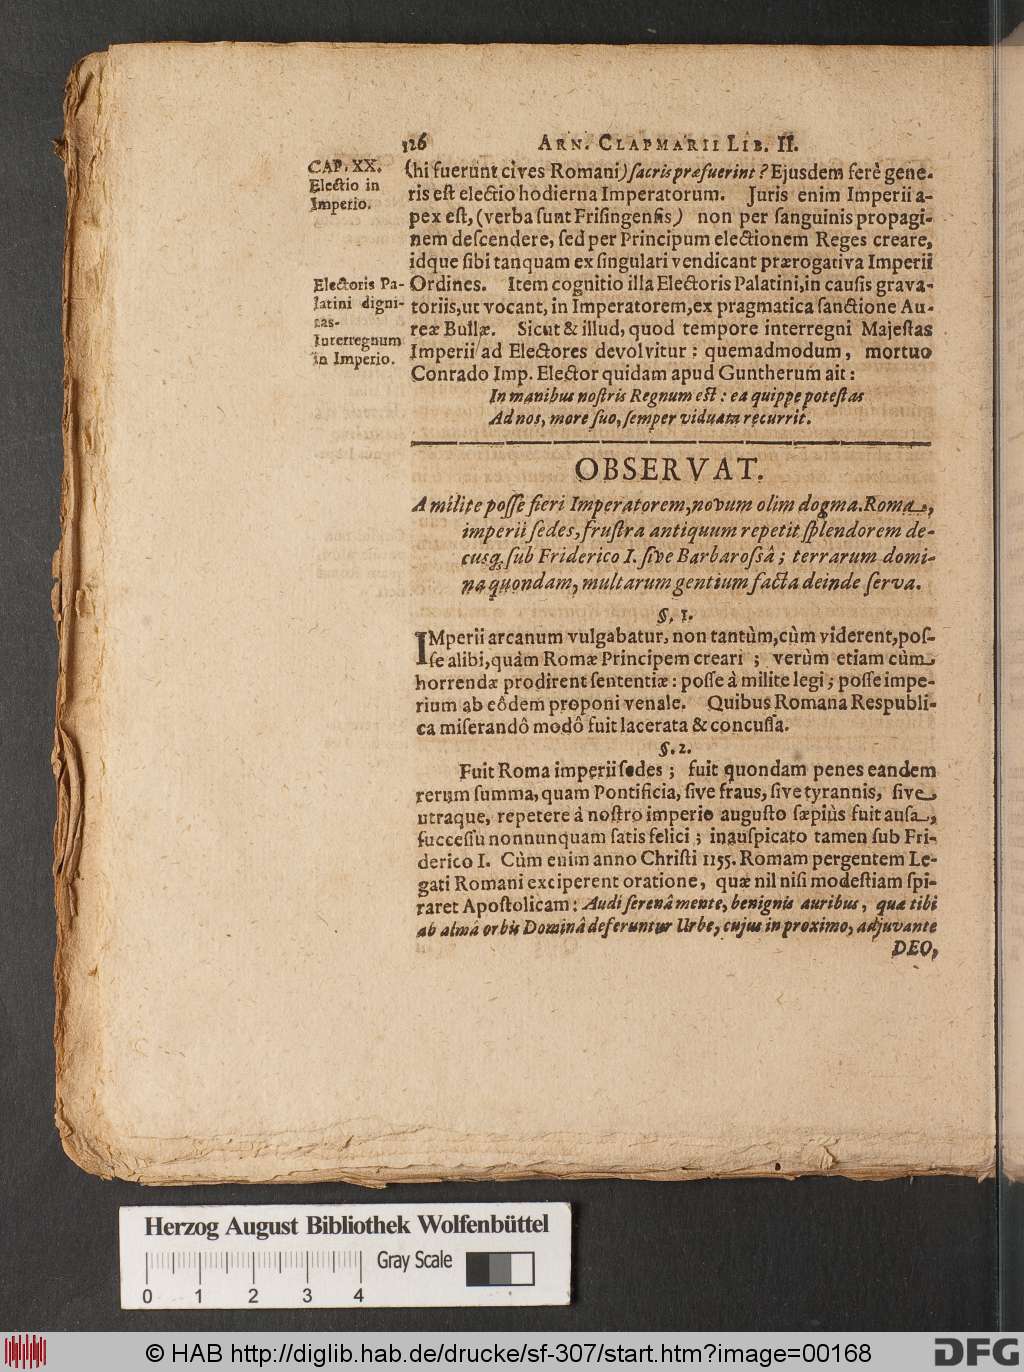 126 ARN. CLAPMARII LIB. II.
CAP. XX.
Electio in
Imperio.
(hi fuerunt cives Romani) sacris præfuerint? Ejusdem ferè gene-
ris est electio hodierna Imperatorum. Juris enim Imperii a-
pex est, (verba sunt Frisingensis) non per sanguinis propagi-
nem descendere, sed per Principum electionem Reges creare,
idque sibi tanquam ex singulari vendicant prærogativa Imperii
Electoris Pa-
latini digni-
tas.
Interregnum
in Imperio.
Ordines. Item cognitio illa Electoris Palatini, in causis grava-
toriis, ut vocant, in Imperatorem, ex pragmatica sanctione Au-
reæ Bullæ. Sicut & illud, quod tempore interregni Majestas
Imperii ad Electores devolvitur: quemadmodum, mortuo
Conrado Imp. Elector quidam apud Guntherum ait:
In manibus nostris Regnum est: ea quippe potestas
Ad nos, more suo, semper viduata recurrit.
OBSERVAT.
A milite posse fieri Imperatorem, novum olim dogma. Roma,
imperii sedes, frustra antiquum repetit splendorem de-
cusq; sub Friderico I. sive Barbarossâ; terrarum domi-
na quondam, multarum gentium facta deinde serva.
§. 1.
IMperii arcanum vulgabatur, non tantùm, cùm viderent, pos-
se alibi, quàm Romæ Principem creari; verùm etiam cùm
horrendæ prodirent sententiæ: posse à milite legi; posse impe-
rium ab eôdem proponi venale. Quibus Romana Respubli-
ca miserandô modô fuit lacerata & concussa.
§. 2.
Fuit Roma imperii sedes; fuit quondam penes eandem
rerum summa, quam Pontificia, sive fraus, sive tyrannis, sive
utraque, repetere à nostro imperio augusto sæpiùs fuit ausa,
successu nonnunquam satis felici; inauspicato tamen sub Fri-
derico I. Cùm enim anno Christi 1155. Romam pergentem Le-
gati Romani exciperent oratione, quæ nil nisi modestiam spi-
raret Apostolicam: Audi serenâ mente, benignis auribus, quæ tibi
ab almâ orbis Dominâ deferuntur Urbe, cujus in proximo, adjuvante
DEO,
Herzog August Bibliothek Wolfenbüttel
Gray Scale
0 1 2 3 4
© HAB http://diglib.hab.de/drucke/sf-307/start.htm?image=00168
DFG